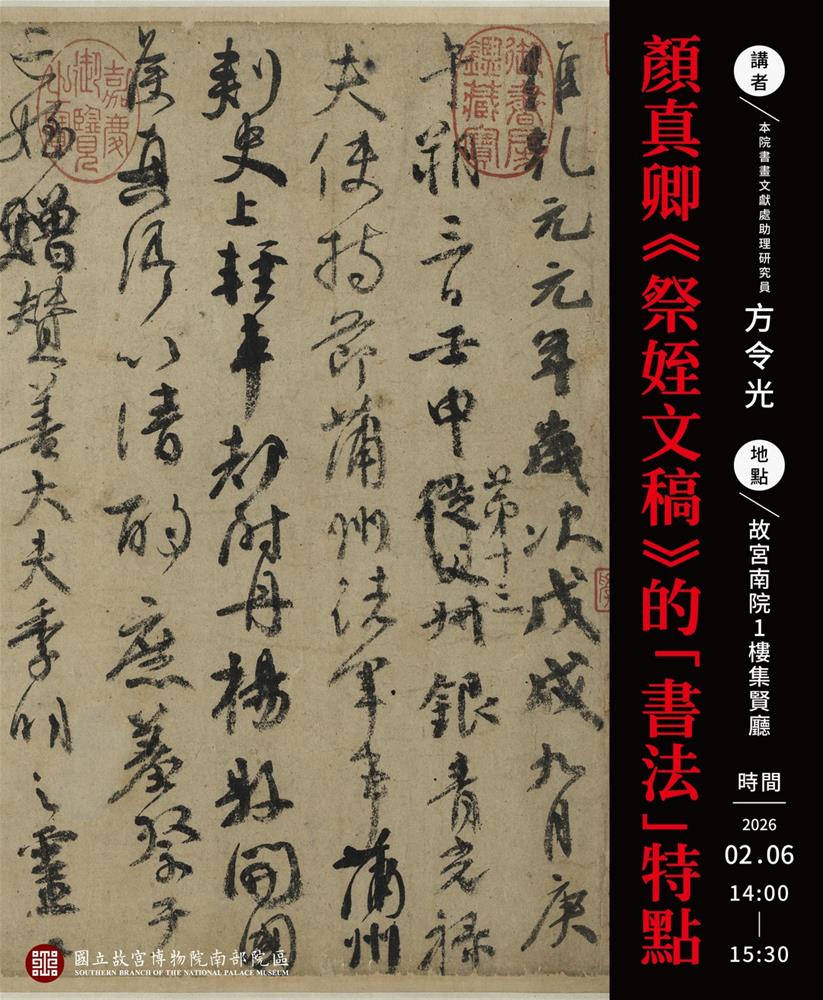 顏真卿《祭姪文稿》的「書法」特點
講者
本院書畫文獻處助理研究員
方令光
地點
故宮南院1樓集賢廳
時間
2026
02.06
14:00
15:30
維乾元元年歲次戊戌九月庚
午朔三日壬申從父叔銀青光祿
第十三
夫使持節蒲州諸軍事蒲州
刺史上輕車都尉丹楊縣開國
侯真卿以清酌庶羞祭于
亡姪贈贊善大夫季明之靈曰
御書房鑑藏寶
嘉慶御覽之寶
國立故宮博物院南部院區
SOUTHERN BRANCH OF THE NATIONAL PALACE MUSEUM